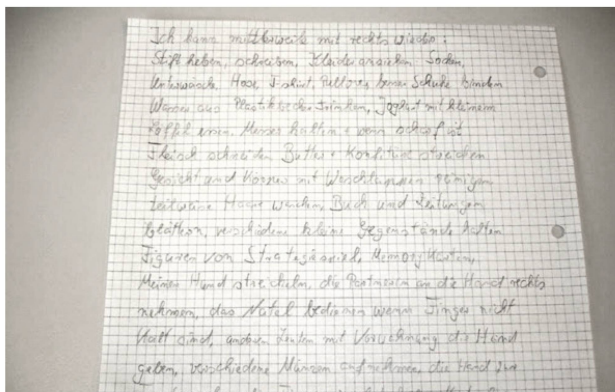 Ich kann mittlerweile mit rechts wieder:
Stift heben, schreiben, Kleider anziehen Socken,
Unterwäsche, Hose, T-shirt, Pullover, Schuhe binden
Wasser aus Plastikbecher trinken, Joghurt mit kleinem
Löffel essen, Messer halten + wenn scharf ist
Fleisch schneiden Butter + Konfitüre streichen
Gesicht und Körper mit Waschlappen reinigen
teilweise Haare waschen, Buch und Zeitungen
blättern, verschiedene kleine Gegenstände halten
Figuren von Strategiespiel, Memory Karten,
Meinen Hund streicheln, die Partnerin an die Hand rechts
nehmen, das Natel bedienen wenn Finger nicht
kalt sind, anderen Leuten mit Vorwarnung die Hand
geben, verschiedene Münzen aufnehmen, die Hand